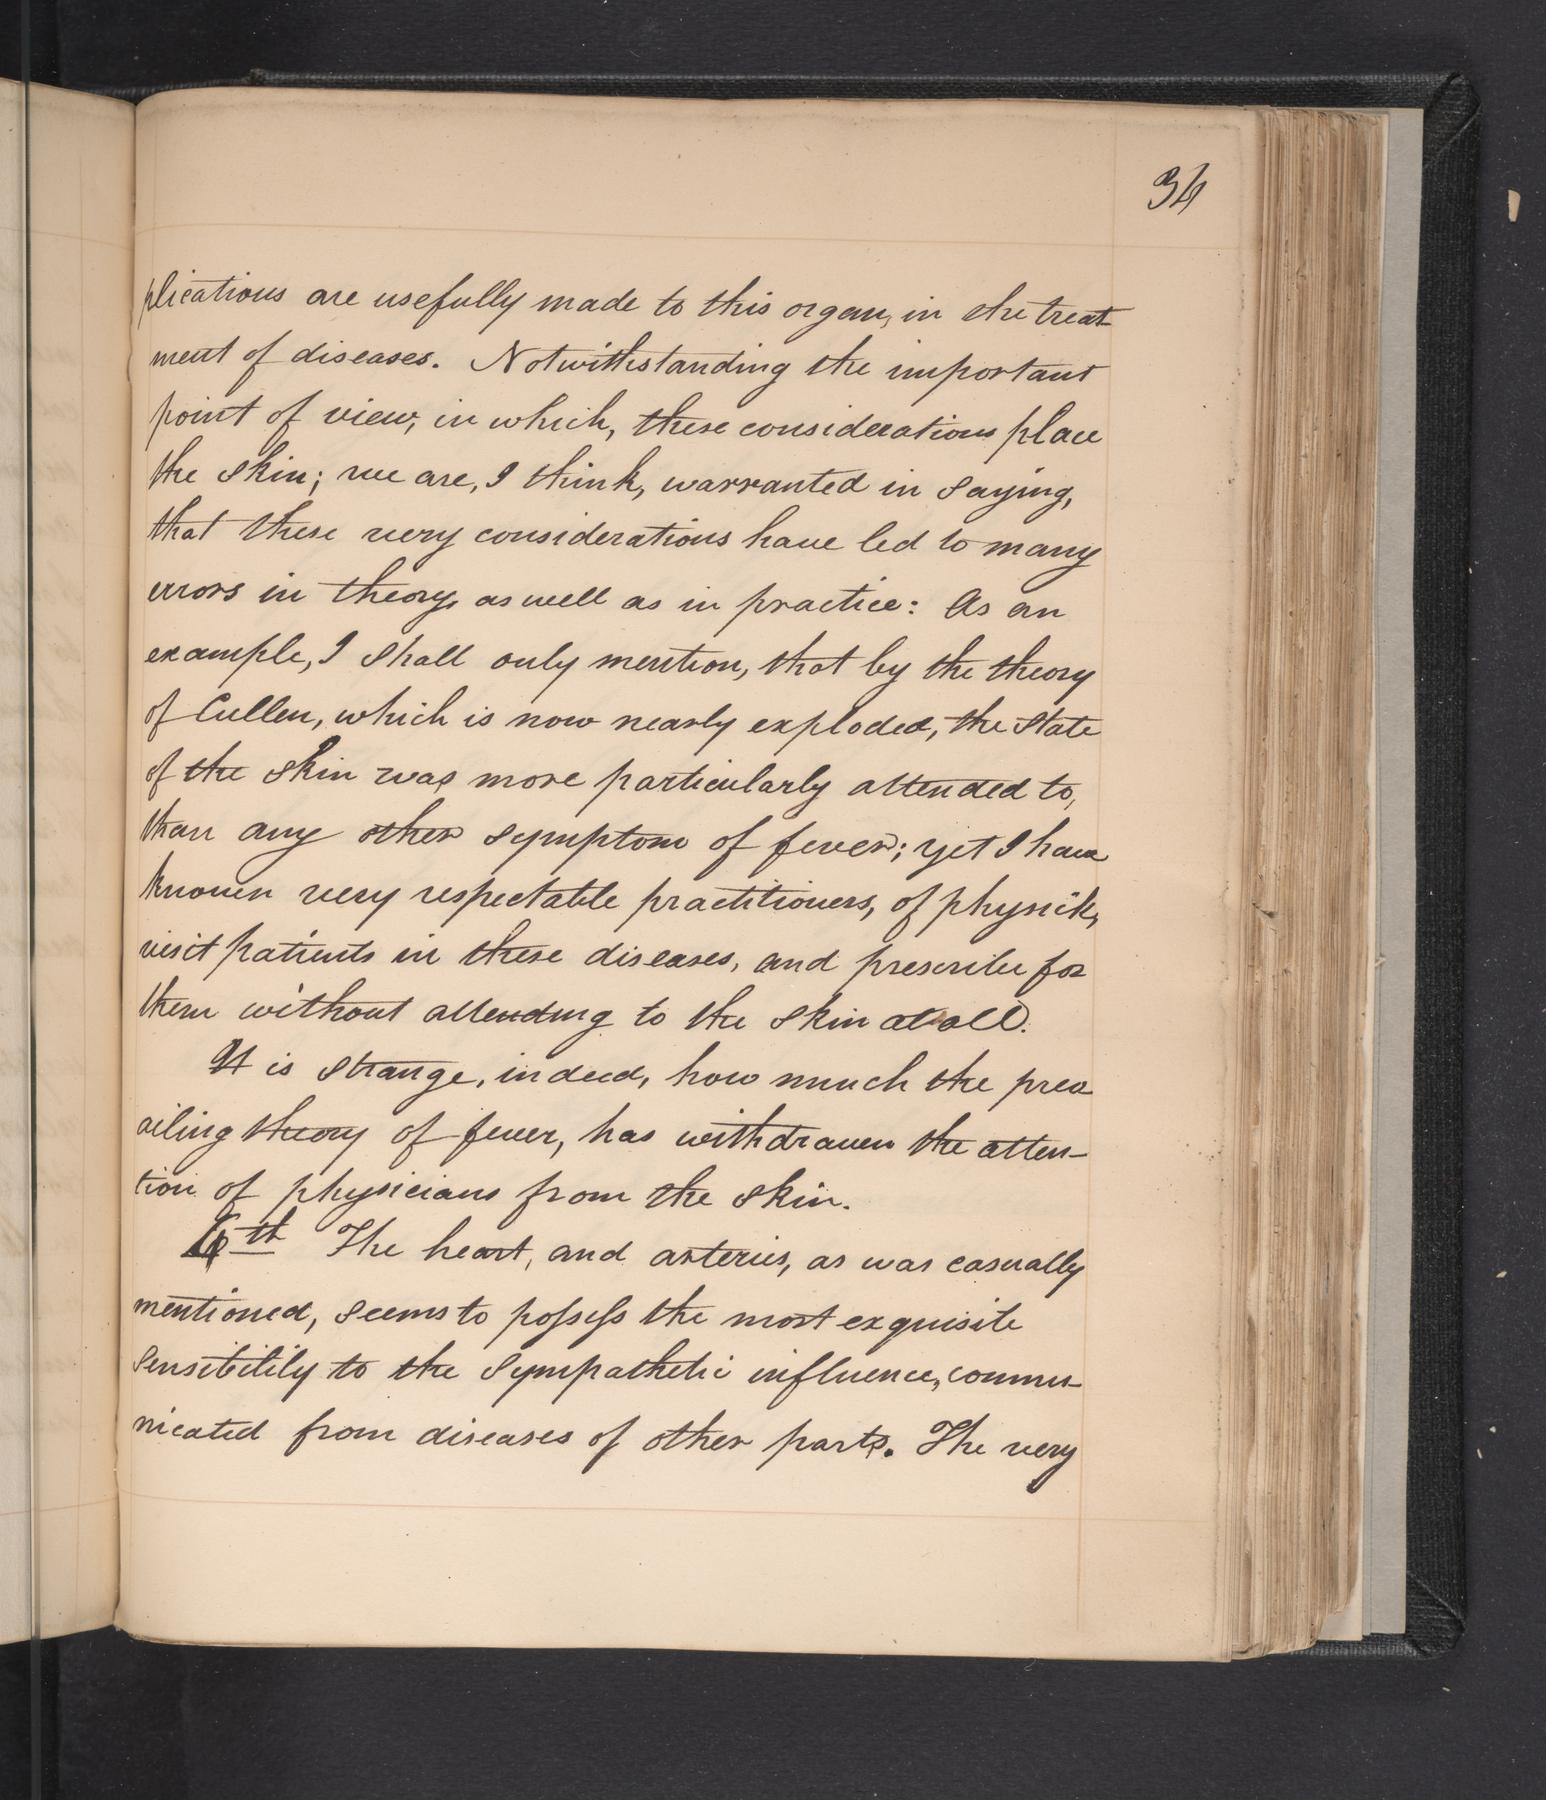 34
plications are usefully made to this organ, in the treat-
ment of diseases. Notwithstanding the important
point of view, in which, these considerations place
the skin; we are, I think, warranted in saying,
that these very considerations have led to many
errors in theory, as well as in practice: As an
example, I shall only mention, that by the theory
of Cullen, which is now nearly exploded, the state
of the skin was more particularly attended to,
than any other symptom of fever; yet I have
known very respectable practitioners, of physick,
visit patients in these diseases, and prescribe for
them without attending to the skin at all.
It is strange, indeed, how much the prev
ailing theory of fever, has withdrawn the atten-
tion of physicians from the skin.
6th The heart, and arteries, as was casually
mentioned, seems to possess the most exquisite
sensibility to the sympathetic influence, commu-
nicated from diseases of other parts. The very